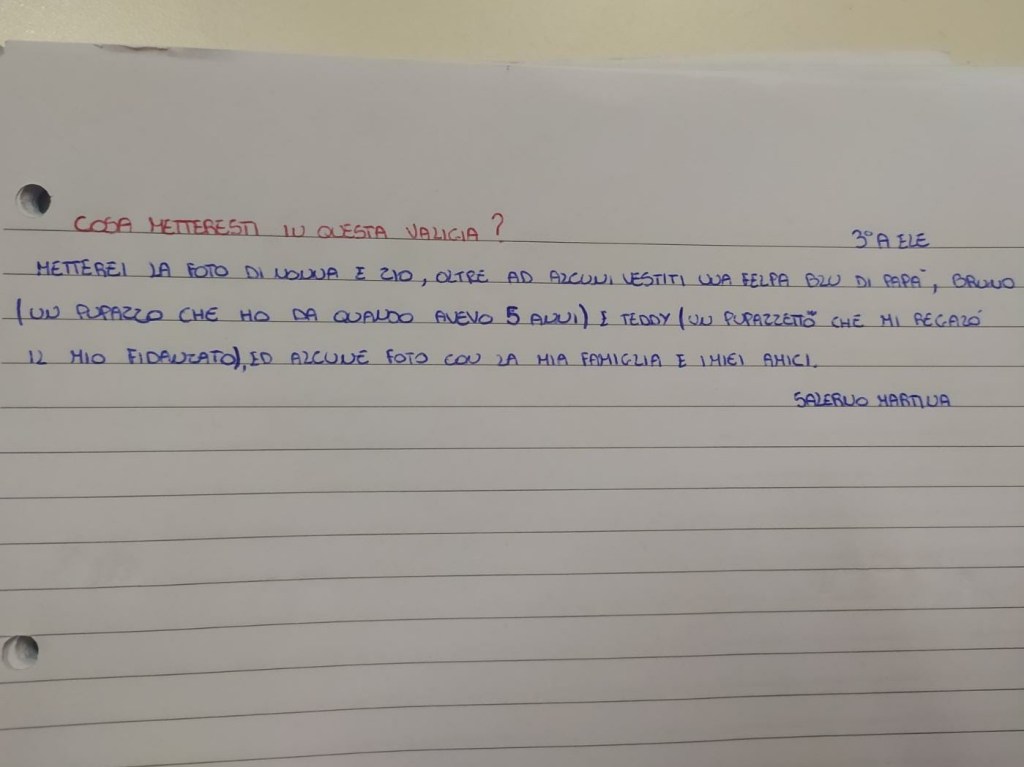 COSA METTERESTI IN QUESTA VALIGIA?
3° A ELE
METTEREI LA FOTO DI NONNA E ZIO, OLTRE AD ALCUNI VESTITI UNA FELPA BLU DI PAPÀ, BRUNO
(UN PUPAZZO CHE HO DA QUANDO AVEVO 5 ANNI) E TEDDY (UN PUPAZZETTO CHE MI REGALÒ
IL MIO FIDANZATO), ED ALCUNE FOTO CON LA MIA FAMIGLIA E I MIEI AMICI.
SALERNO MARTINA